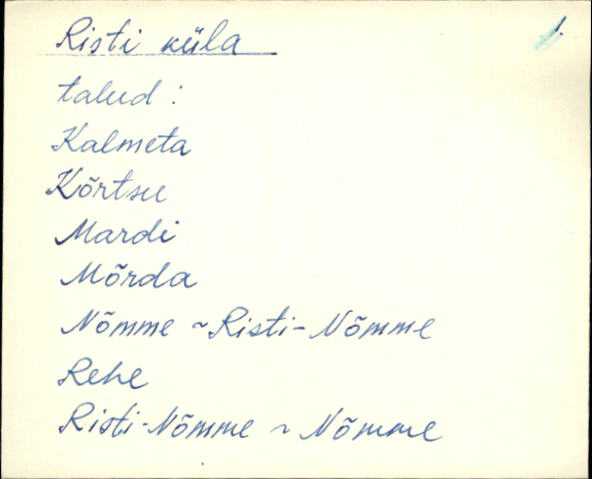 Risti küla
1.
talud:
Kalmeta
Kõrtsu
Mardi
Mõrda
Nõmme ~ Risti-Nõmme
Rehe
Risti-Nõmme ~ Nõmme